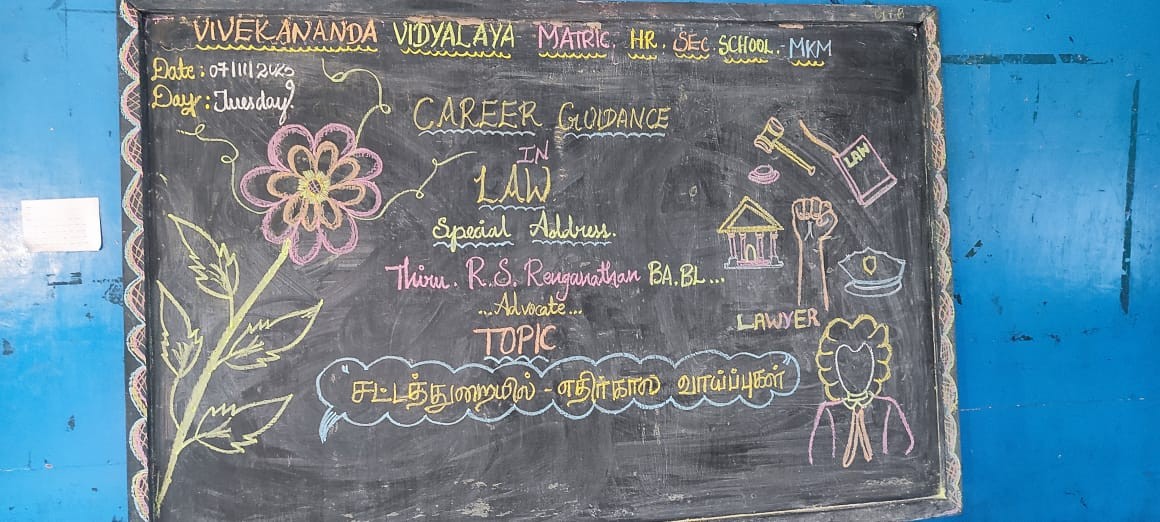 VIVEKANANDA VIDYALAYA MATRIC. HR. SEC SCHOOL. MKM
Date : 07/11/2023
Day : Tuesday.
CAREER GUIDANCE
IN
LAW
Special Address.
Thiru. R.S. Renganathan BA.BL...
...Advocate...
TOPIC
சட்டத்துறையில் - எதிர்கால வாய்ப்புகள்
LAW
LAWYER